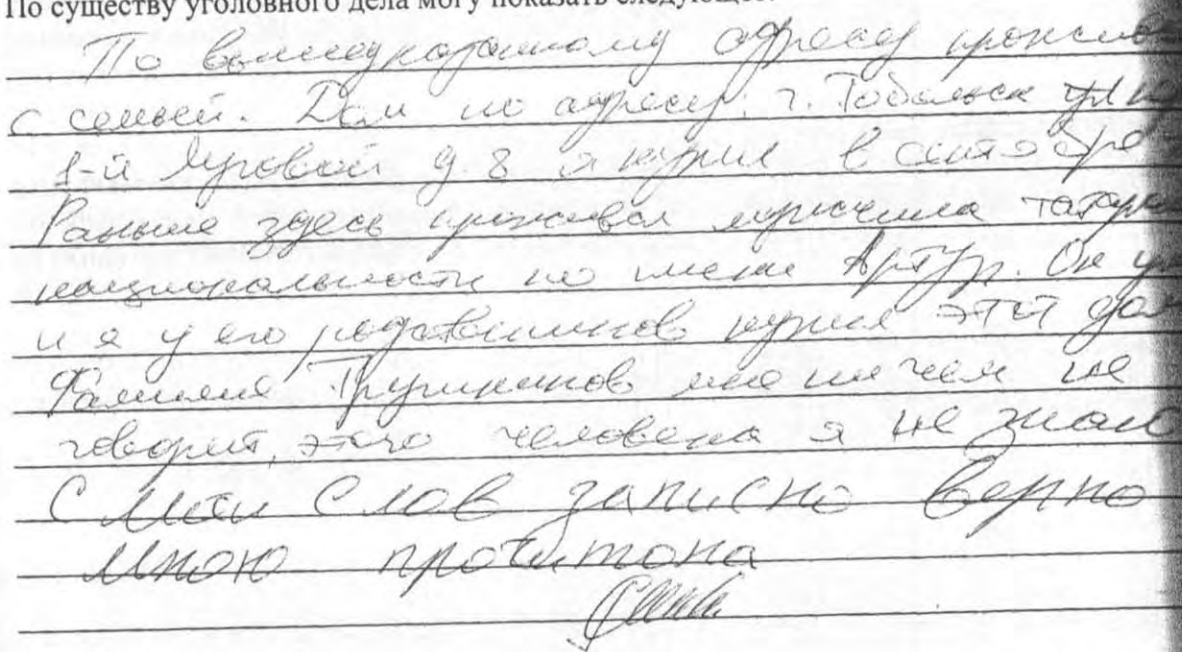 По существу уголовного дела могу показать следующее:
По вышеуказанному адресу прожив
с семьей. Дом по адресу: г. Тобольск
1-й Луговой д. 8 я купил в сентябре
Раньше здесь проживал мужчина татарс
национальности по имени Артур. Он у
и я у его родственников купил этот дом
Фамилия мне ни чем не
говорит, этого человека я не знаю
С мои слов записно верно
Мною прочитона